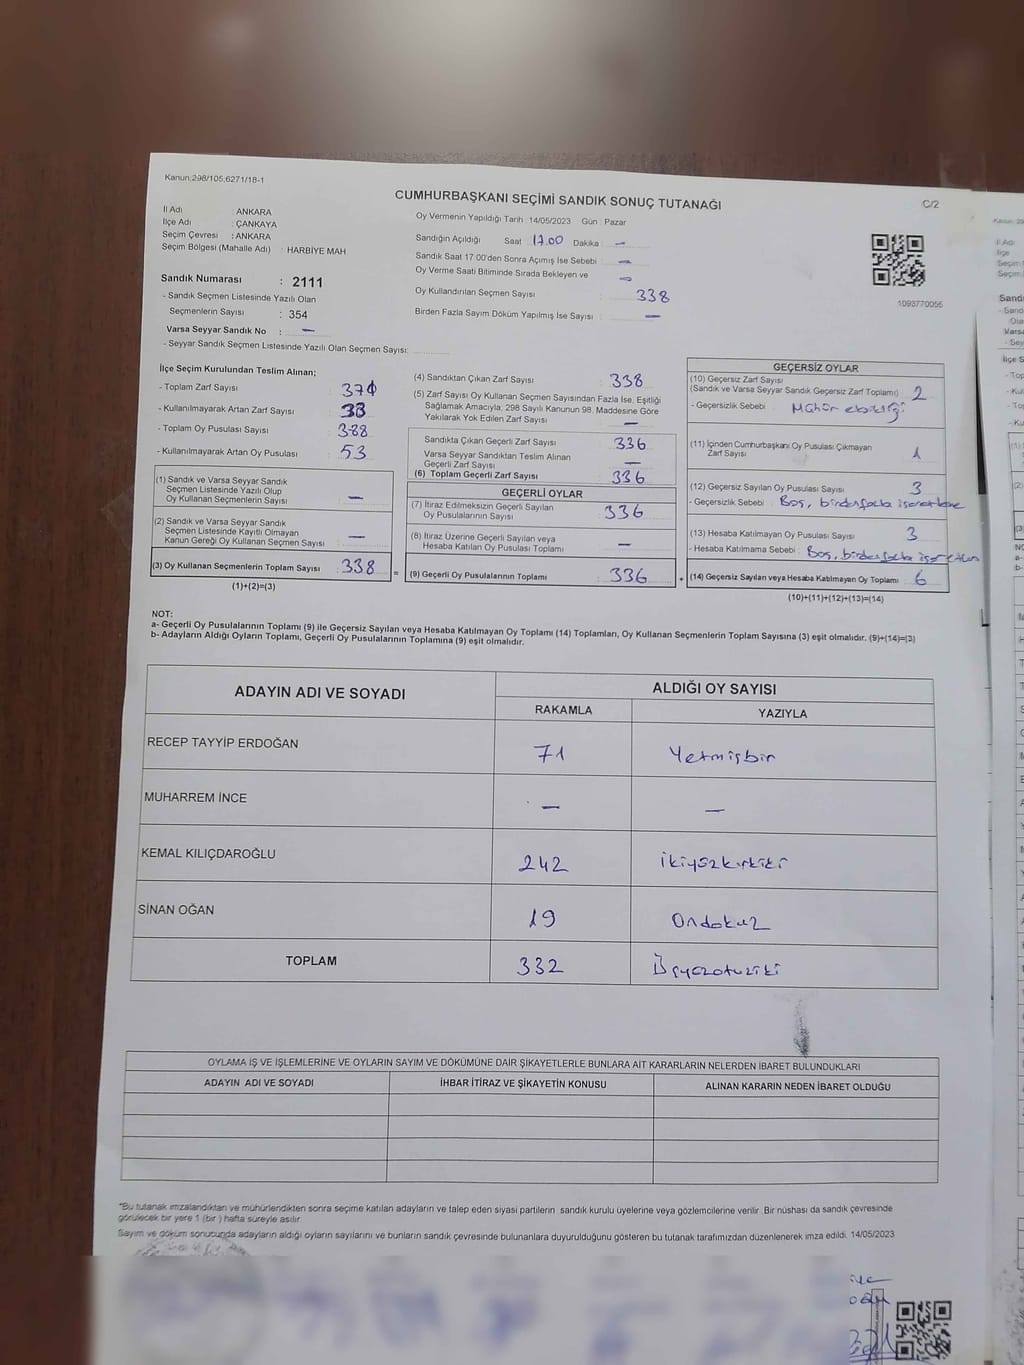 Kanun;298/105,6271/18-1
CUMHURBAŞKANI SEÇİMİ SANDIK SONUÇ TUTANAĞI
C/2
İl Adı : ANKARA
İlçe Adı : ÇANKAYA
Seçim Çevresi : ANKARA
Seçim Bölgesi (Mahalle Adı) : HARBİYE MAH
Sandık Numarası : 2111
- Sandık Seçmen Listesinde Yazılı Olan
Seçmenlerin Sayısı : 354
Varsa Seyyar Sandık No : —
- Seyyar Sandık Seçmen Listesinde Yazılı Olan Seçmen Sayısı:
Oy Vermenin Yapıldığı Tarih :14/05/2023 Gün : Pazar
Sandığın Açıldığı Saat 17.00 Dakika : —
Sandık Saat 17:00'den Sonra Açımış İse Sebebi : —
Oy Verme Saati Bitiminde Sırada Bekleyen ve —
Oy Kullandırılan Seçmen Sayısı : 338
Birden Fazla Sayım Döküm Yapılmış İse Sayısı : —
1093770055
İlçe Seçim Kurulundan Teslim Alınan;
- Toplam Zarf Sayısı
- Kullanılmayarak Artan Zarf Sayısı : 33
- Toplam Oy Pusulası Sayısı : 388
- Kullanılmayarak Artan Oy Pusulası : 53
(1) Sandık ve Varsa Seyyar Sandık
Seçmen Listesinde Yazılı Olup
Oy Kullanan Seçmenlerin Sayısı : —
(2) Sandık ve Varsa Seyyar Sandık
Seçmen Listesinde Kayıtlı Olmayan
Kanun Gereği Oy Kullanan Seçmen Sayısı : —
(3) Oy Kullanan Seçmenlerin Toplam Sayısı : 338
(1)+(2)=(3)
=
(4) Sandıktan Çıkan Zarf Sayısı : 338
(5) Zarf Sayısı Oy Kullanan Seçmen Sayısından Fazla İse, Eşitliği
Sağlamak Amacıyla; 298 Sayılı Kanunun 98. Maddesine Göre
Yakılarak Yok Edilen Zarf Sayısı : —
Sandıkta Çıkan Geçerli Zarf Sayısı : 336
Varsa Seyyar Sandıktan Teslim Alınan
Geçerli Zarf Sayısı : —
(6) Toplam Geçerli Zarf Sayısı : 336
GEÇERLİ OYLAR
(7) İtiraz Edilmeksizin Geçerli Sayılan
Oy Pusulalarının Sayısı : 336
(8) İtiraz Üzerine Geçerli Sayılan veya
Hesaba Katılan Oy Pusulası Toplamı : —
(9) Geçerli Oy Pusulalarının Toplamı : 336
+
GEÇERSİZ OYLAR
(10) Geçersiz Zarf Sayısı
(Sandık ve Varsa Seyyar Sandık Geçersiz Zarf Toplamı) : 2
- Geçersizlik Sebebi : Mühür eksikliği
(11) İçinden Cumhurbaşkanı Oy Pusulası Çıkmayan
Zarf Sayısı : 1
(12) Geçersiz Sayılan Oy Pusulası Sayısı : 3
- Geçersizlik Sebebi : Boş, birdenfazla işaretleme
(13) Hesaba Katılmayan Oy Pusulası Sayısı : 3
- Hesaba Katılmama Sebebi : Boş, birdenfazla
(14) Geçersiz Sayılan veya Hesaba Katılmayan Oy Toplamı : 6
(10)+(11)+(12)+(13)=(14)
NOT:
a- Geçerli Oy Pusulalarının Toplamı (9) ile Geçersiz Sayılan veya Hesaba Katılmayan Oy Toplamı (14) Toplamları, Oy Kullanan Seçmenlerin Toplam Sayısına (3) eşit olmalıdır. (9)+(14)=(3)
b- Adayların Aldığı Oyların Toplamı, Geçerli Oy Pusulalarının Toplamına (9) eşit olmalıdır.
ADAYIN ADI VE SOYADI
ALDIĞI OY SAYISI
RAKAMLA YAZIYLA
RECEP TAYYİP ERDOĞAN 71 Yetmişbir
MUHARREM İNCE — —
KEMAL KILIÇDAROĞLU 242 ikiyüzkırkiki
SİNAN OĞAN 19 Ondokuz
TOPLAM 332 Üçyüzotuziki
OYLAMA İŞ VE İŞLEMLERİNE VE OYLARIN SAYIM VE DÖKÜMÜNE DAİR ŞİKAYETLERLE BUNLARA AİT KARARLARIN NELERDEN İBARET BULUNDUKLARI
ADAYIN ADI VE SOYADI İHBAR İTİRAZ VE ŞİKAYETİN KONUSU ALINAN KARARIN NEDEN İBARET OLDUĞU
*Bu tutanak imzalandıktan ve mühürlendikten sonra seçime katılan adayların ve talep eden siyasi partilerin sandık kurulu üyelerine veya gözlemcilerine verilir. Bir nüshası da sandık çevresinde
görülecek bir yere 1 (bir ) hafta süreyle asılır.
Sayım ve döküm sonucunda adayların aldığı oyların sayılarını ve bunların sandık çevresinde bulunanlara duyurulduğunu gösteren bu tutanak tarafımızdan düzenlenerek imza edildi. 14/05/2023